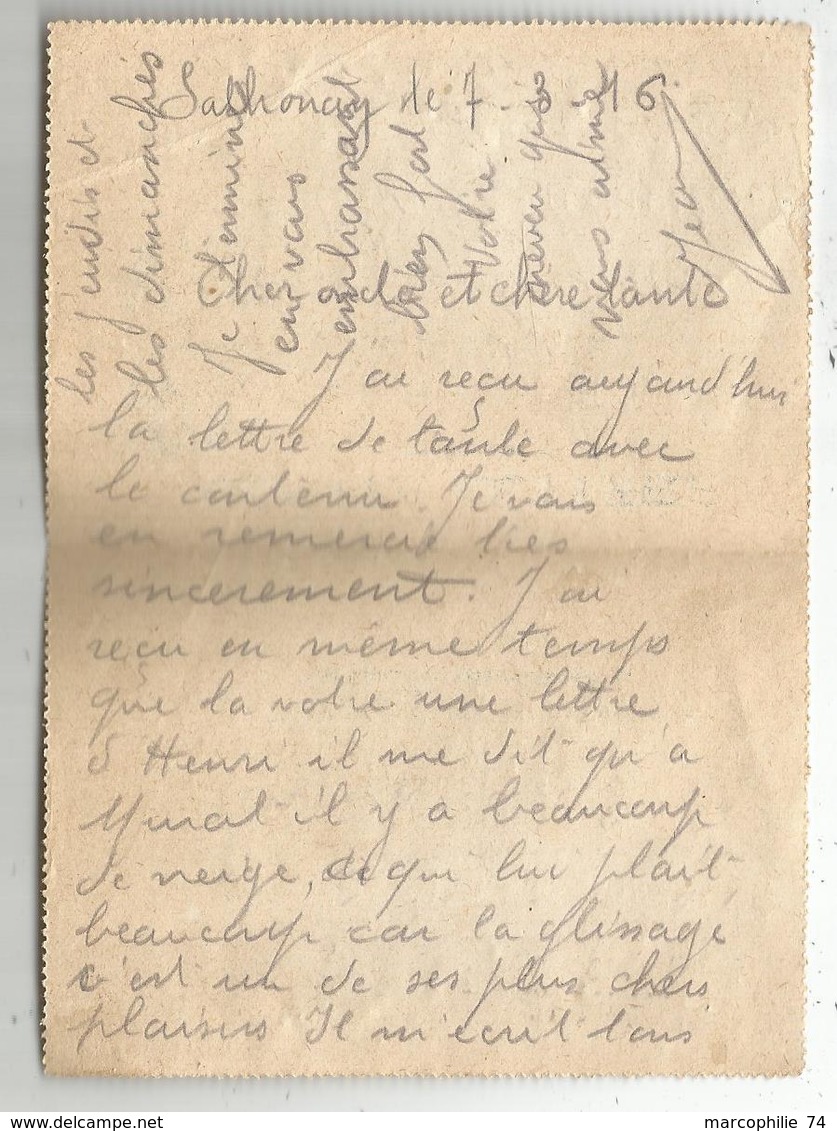 Sathonay le 7-3-16
Cher oncle et chère tante
J'ai reçu aujourd'hui
la lettre de tante avec
le contenu. Je vous
en remercie tres
sincerement. J'ai
reçu en même temps
que la votre une lettre
d'Henri il me dit qu'a
Murat il y a beaucoup
de neige, ce qui lui plait
beaucoup car la glissage
c'est un de ses plus chers
plaisirs Il m'ecrit tous
les jeudis et
les dimanches
Je termine
en vous
embrassant
bien fort
Votre
neveu qui
vous aime
Jean
marcophilie 74